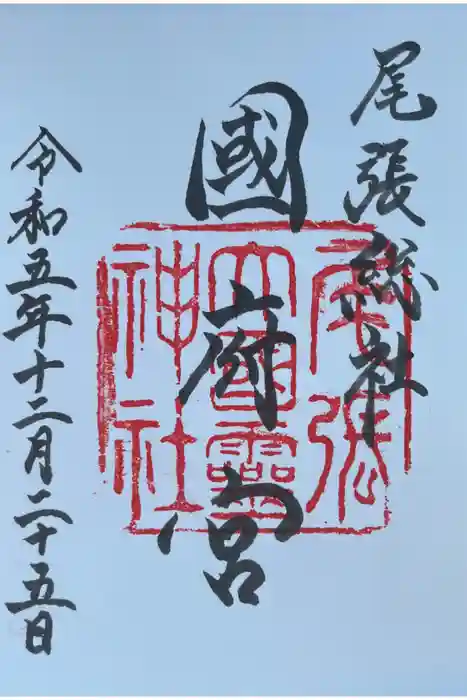 尾張総社
國府宮
令和五年十二月二十五日
尾張
大國霊
神社